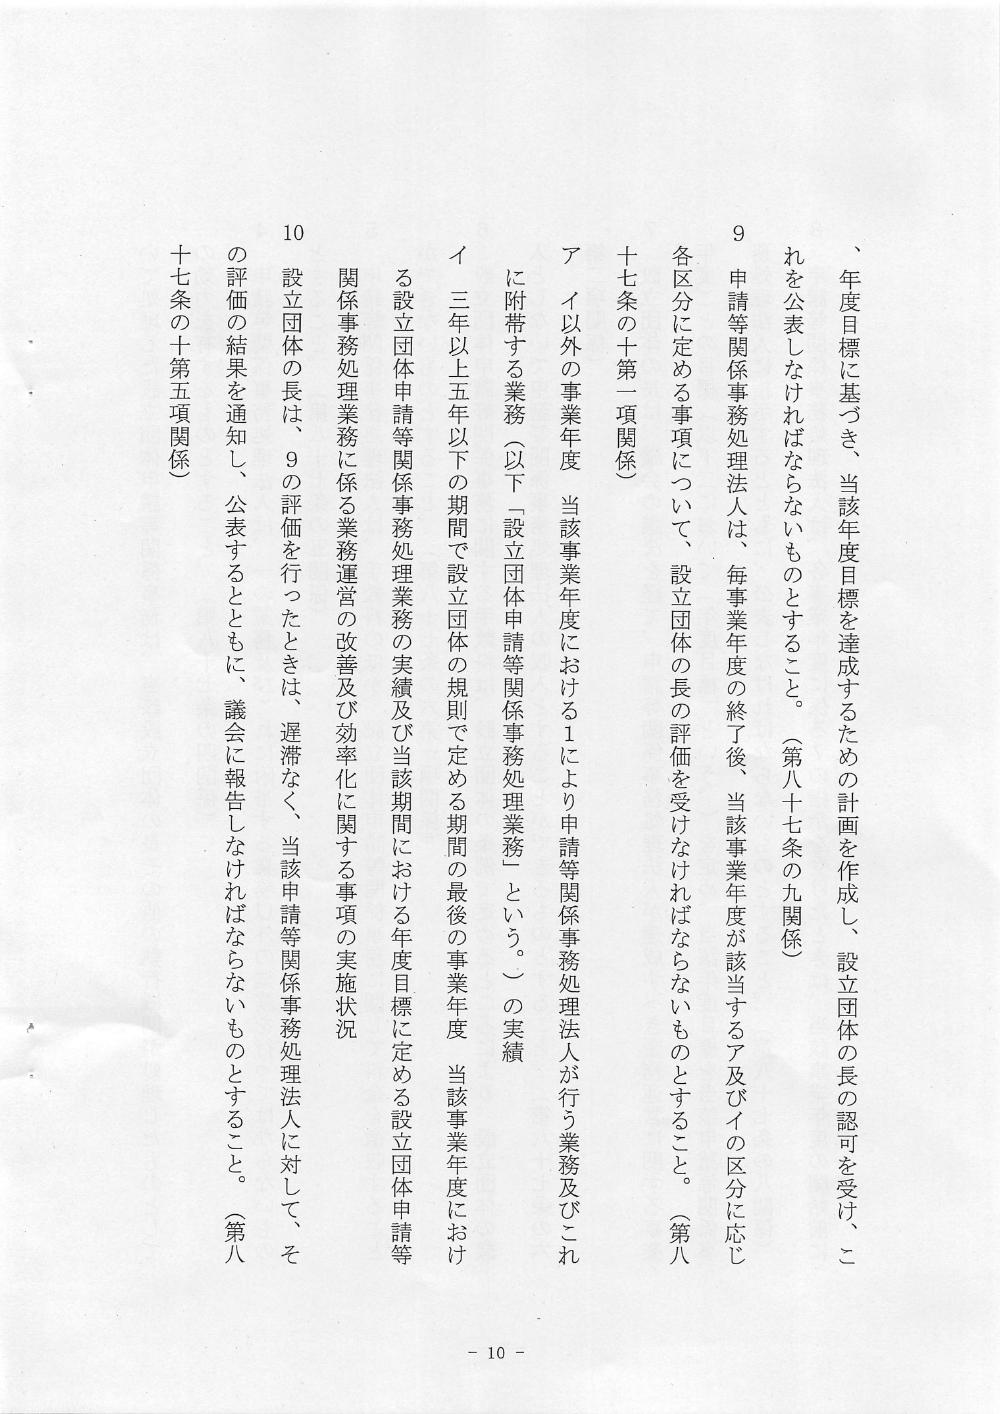 、年度目標に基づき、当該年度目標を達成するための計画を作成し、設立団体の長の認可を受け、こ
れを公表しなければならないものとすること。（第八十七条の九関係）
９　申請等関係事務処理法人は、毎事業年度の終了後、当該事業年度が該当するア及びイの区分に応じ
各区分に定める事項について、設立団体の長の評価を受けなければならないものとすること。（第八
十七条の十第一項関係）
ア　イ以外の事業年度　当該事業年度における１により申請等関係事務処理法人が行う業務及びこれ
に附帯する業務（以下「設立団体申請等関係事務処理業務」という。）の実績
イ　三年以上五年以下の期間で設立団体の規則で定める期間の最後の事業年度　当該事業年度におけ
る設立団体申請等関係事務処理業務の実績及び当該期間における年度目標に定める設立団体申請等
関係事務処理業務に係る業務運営の改善及び効率化に関する事項の実施状況
10　設立団体の長は、９の評価を行ったときは、遅滞なく、当該申請等関係事務処理法人に対して、そ
の評価の結果を通知し、公表するとともに、議会に報告しなければならないものとすること。（第八
十七条の十第五項関係）
- 10 -